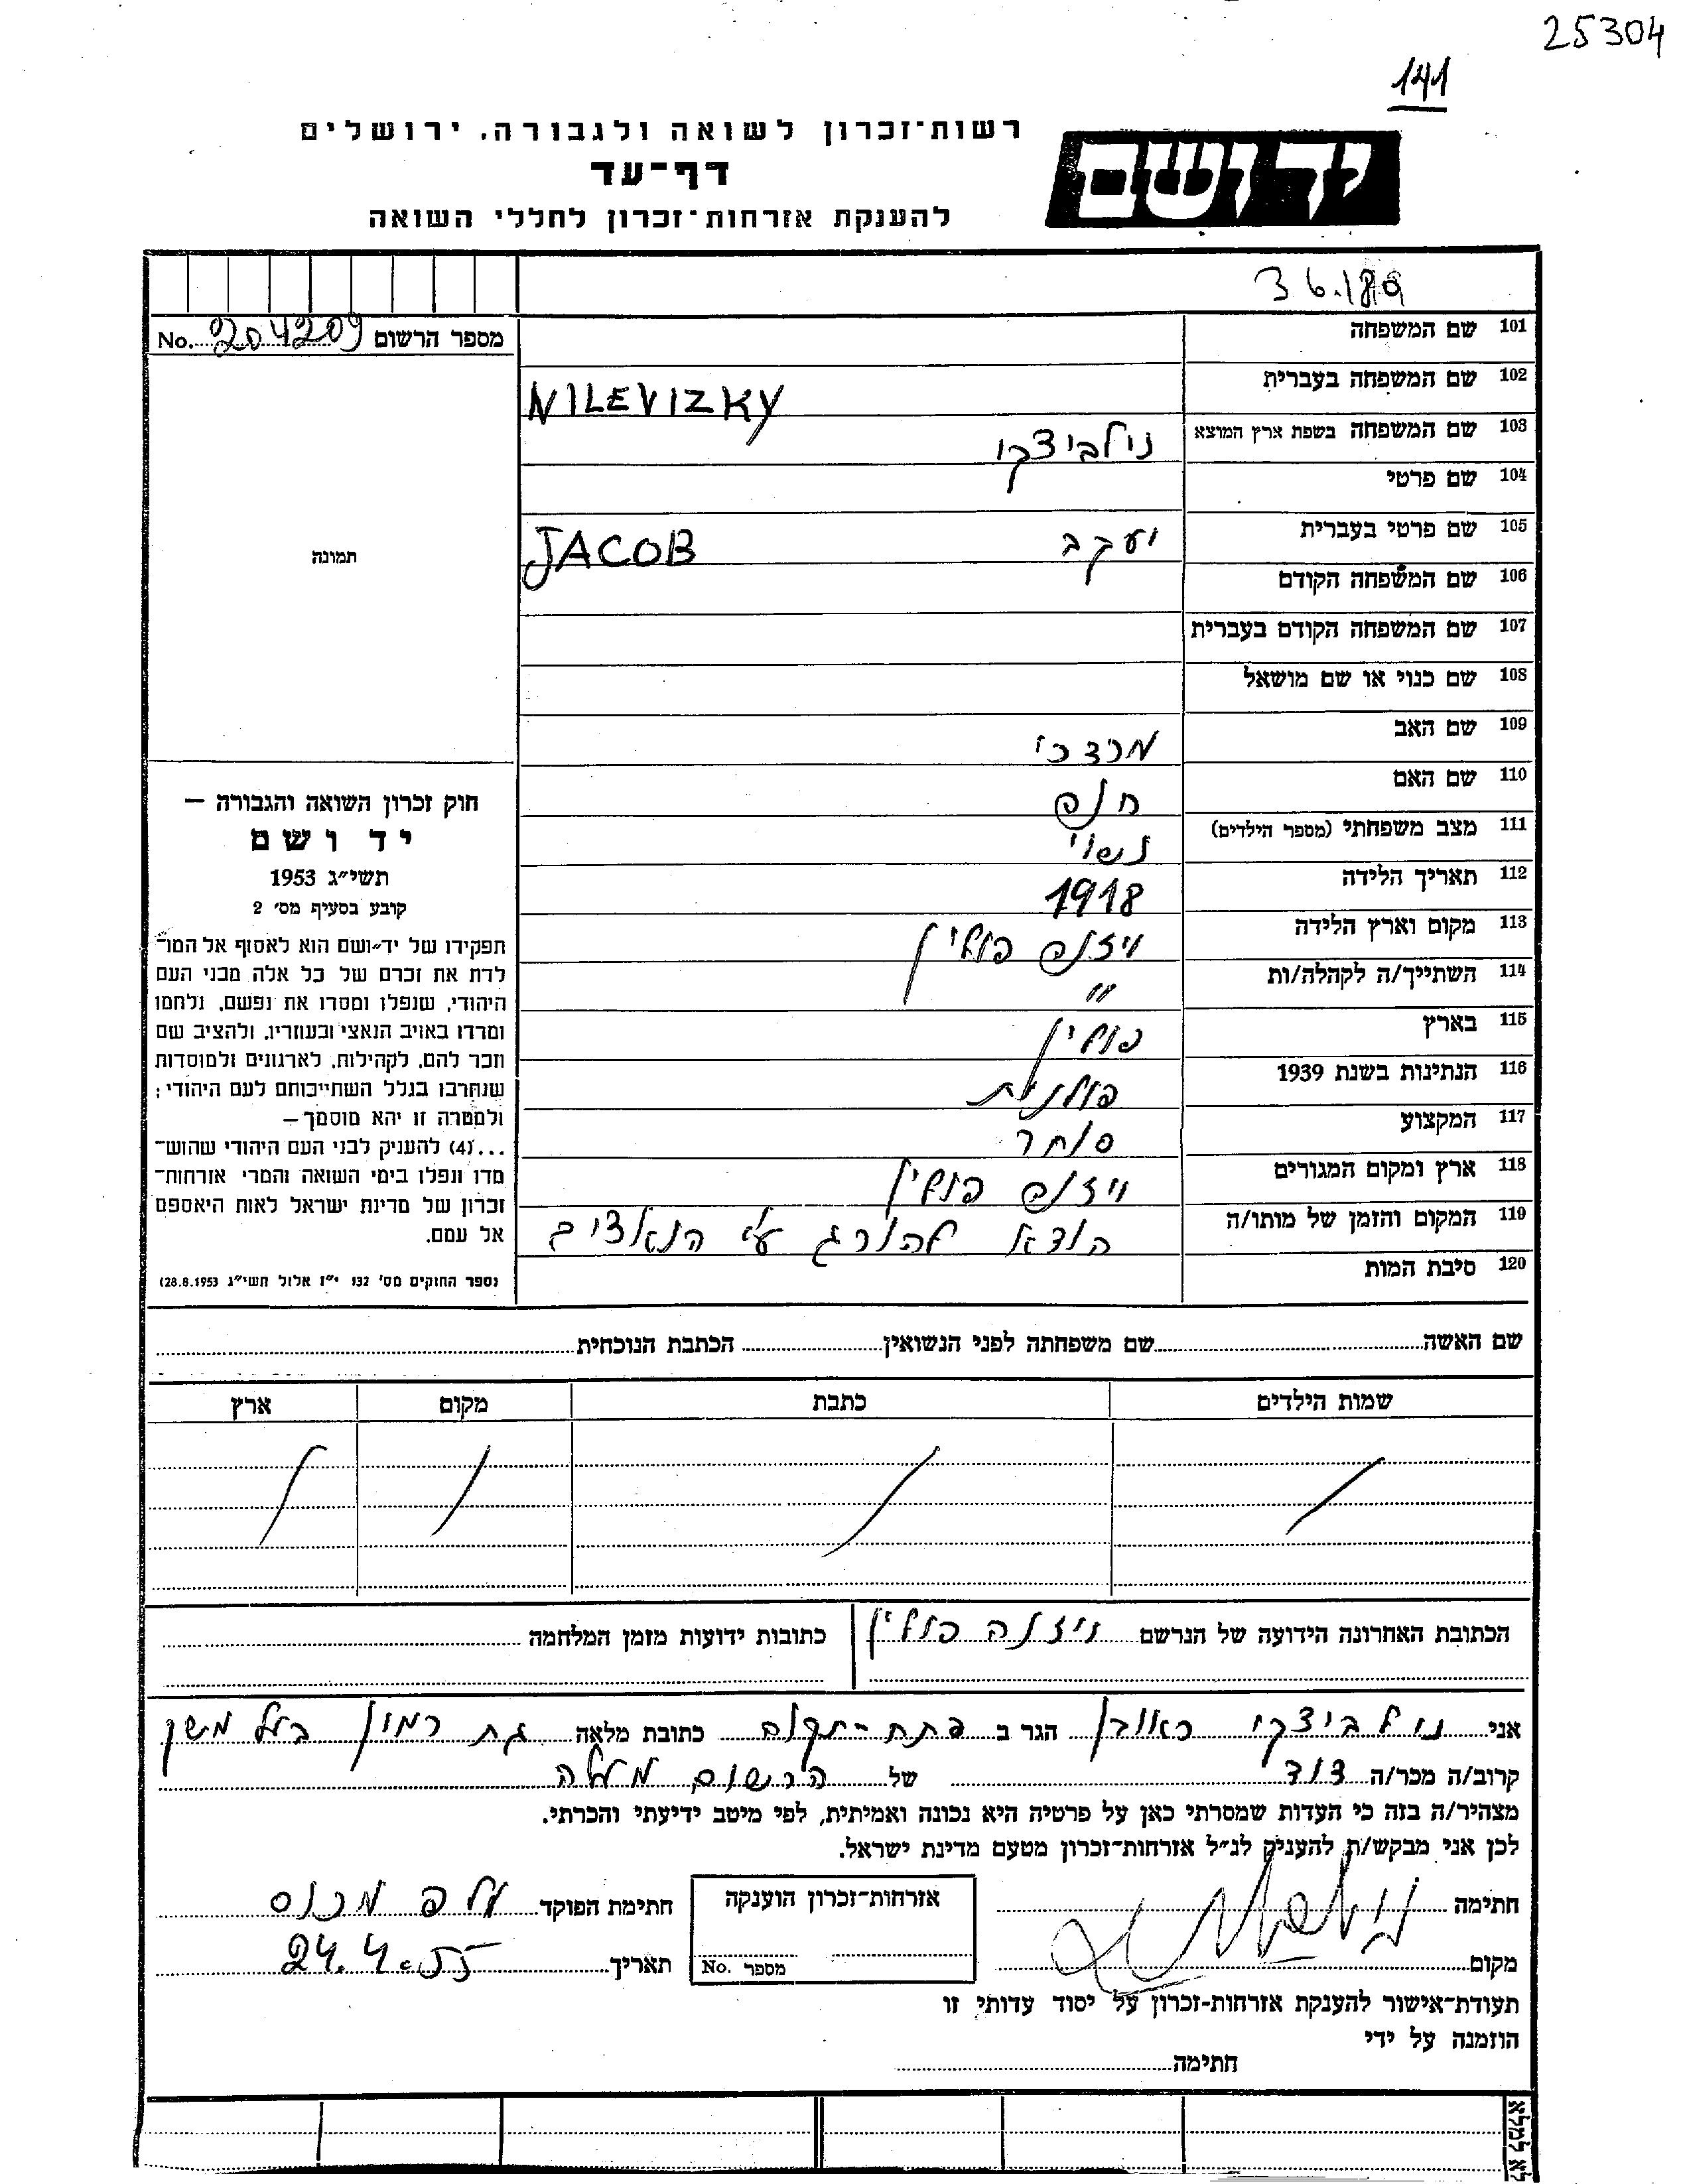 25304
141
רשות-זכרון לשואה ולגבורה. ירושלים
יד ושם
דף-עד
להענקת אזרחות-זכרון לחללי השואה
36.189
מספר הרשום No. 204209
101 שם המשפחה
102 שם המשפחה בעברית NILEVIZKY
103 שם המשפחה בשפת ארץ המוצא נילביצקי
104 שם פרטי
105 שם פרטי בעברית יעקב JACOB
106 שם המשפחה הקודם
107 שם המשפחה הקודם בעברית
108 שם כנוי או שם מושאל
109 שם האב מרדכי
110 שם האם חנה
111 מצב משפחתי (מספר הילדים) נשוי
112 תאריך הלידה 1918
113 מקום וארץ הלידה ויזנה פולין
114 השתייך/ה לקהלה/ות "
115 בארץ פולין
116 הנתינות בשנת 1939 פולנית
117 המקצוע סוחר
118 ארץ ומקום המגורים ויזנה פולין
119 המקום והזמן של מותו/ה הוצא להורג ע"י הנאצים
120 סיבת המות
תמונה
חוק זכרון השואה והגבורה –
יד ושם
תשי"ג 1953
קובע בסעיף מס' 2
תפקידו של יד-ושם הוא לאסוף אל המו-
לדת את זכרם של כל אלה מבני העם
היהודי, שנפלו ומסרו את נפשם, נלחמו
ומרדו באויב הנאצי ובעוזריו, ולהציב שם
וזכר להם, לקהילות, לארגונים ולמוסדות
שנחרבו בגלל השתייכותם לעם היהודי;
ולמטרה זו יהא מוסמך–
...(4) להעניק לבני העם היהודי שהוש-
מדו ונפלו בימי השואה והמרי אזרחות-
זכרון של מדינת ישראל לאות היאספם
אל עמם.
(ספר החוקים מס' 132 י"ז אלול תשי"ג 28.8.1953)
שם האשה שם משפחתה לפני הנשואין הכתבת הנוכחית
שמות הילדים כתבת מקום ארץ
הכתובת האחרונה הידועה של הנרשם ויזנה פולין כתובות ידועות מזמן המלחמה
אני נילביצקי ראובן הגר ב פתח-תקוה כתובת מלאה גת רמון בעל משק
קרוב/ה מכר/ה דוד של הרשום מעלה
מצהיר/ה בזה כי העדות שמסרתי כאן על פרטיה היא נכונה ואמיתית, לפי מיטב ידיעתי והכרתי.
לכן אני מבקש/ת להעניק לנ"ל אזרחות-זכרון מטעם מדינת ישראל.
חתימה
מקום
אזרחות-זכרון הוענקה
מספר No.
חתימת הפוקד
תאריך 24.4.55
תעודת-אישור להענקת אזרחות-זכרון על יסוד עדותי זו
הוזמנה על ידי
חתימה
לא למלא